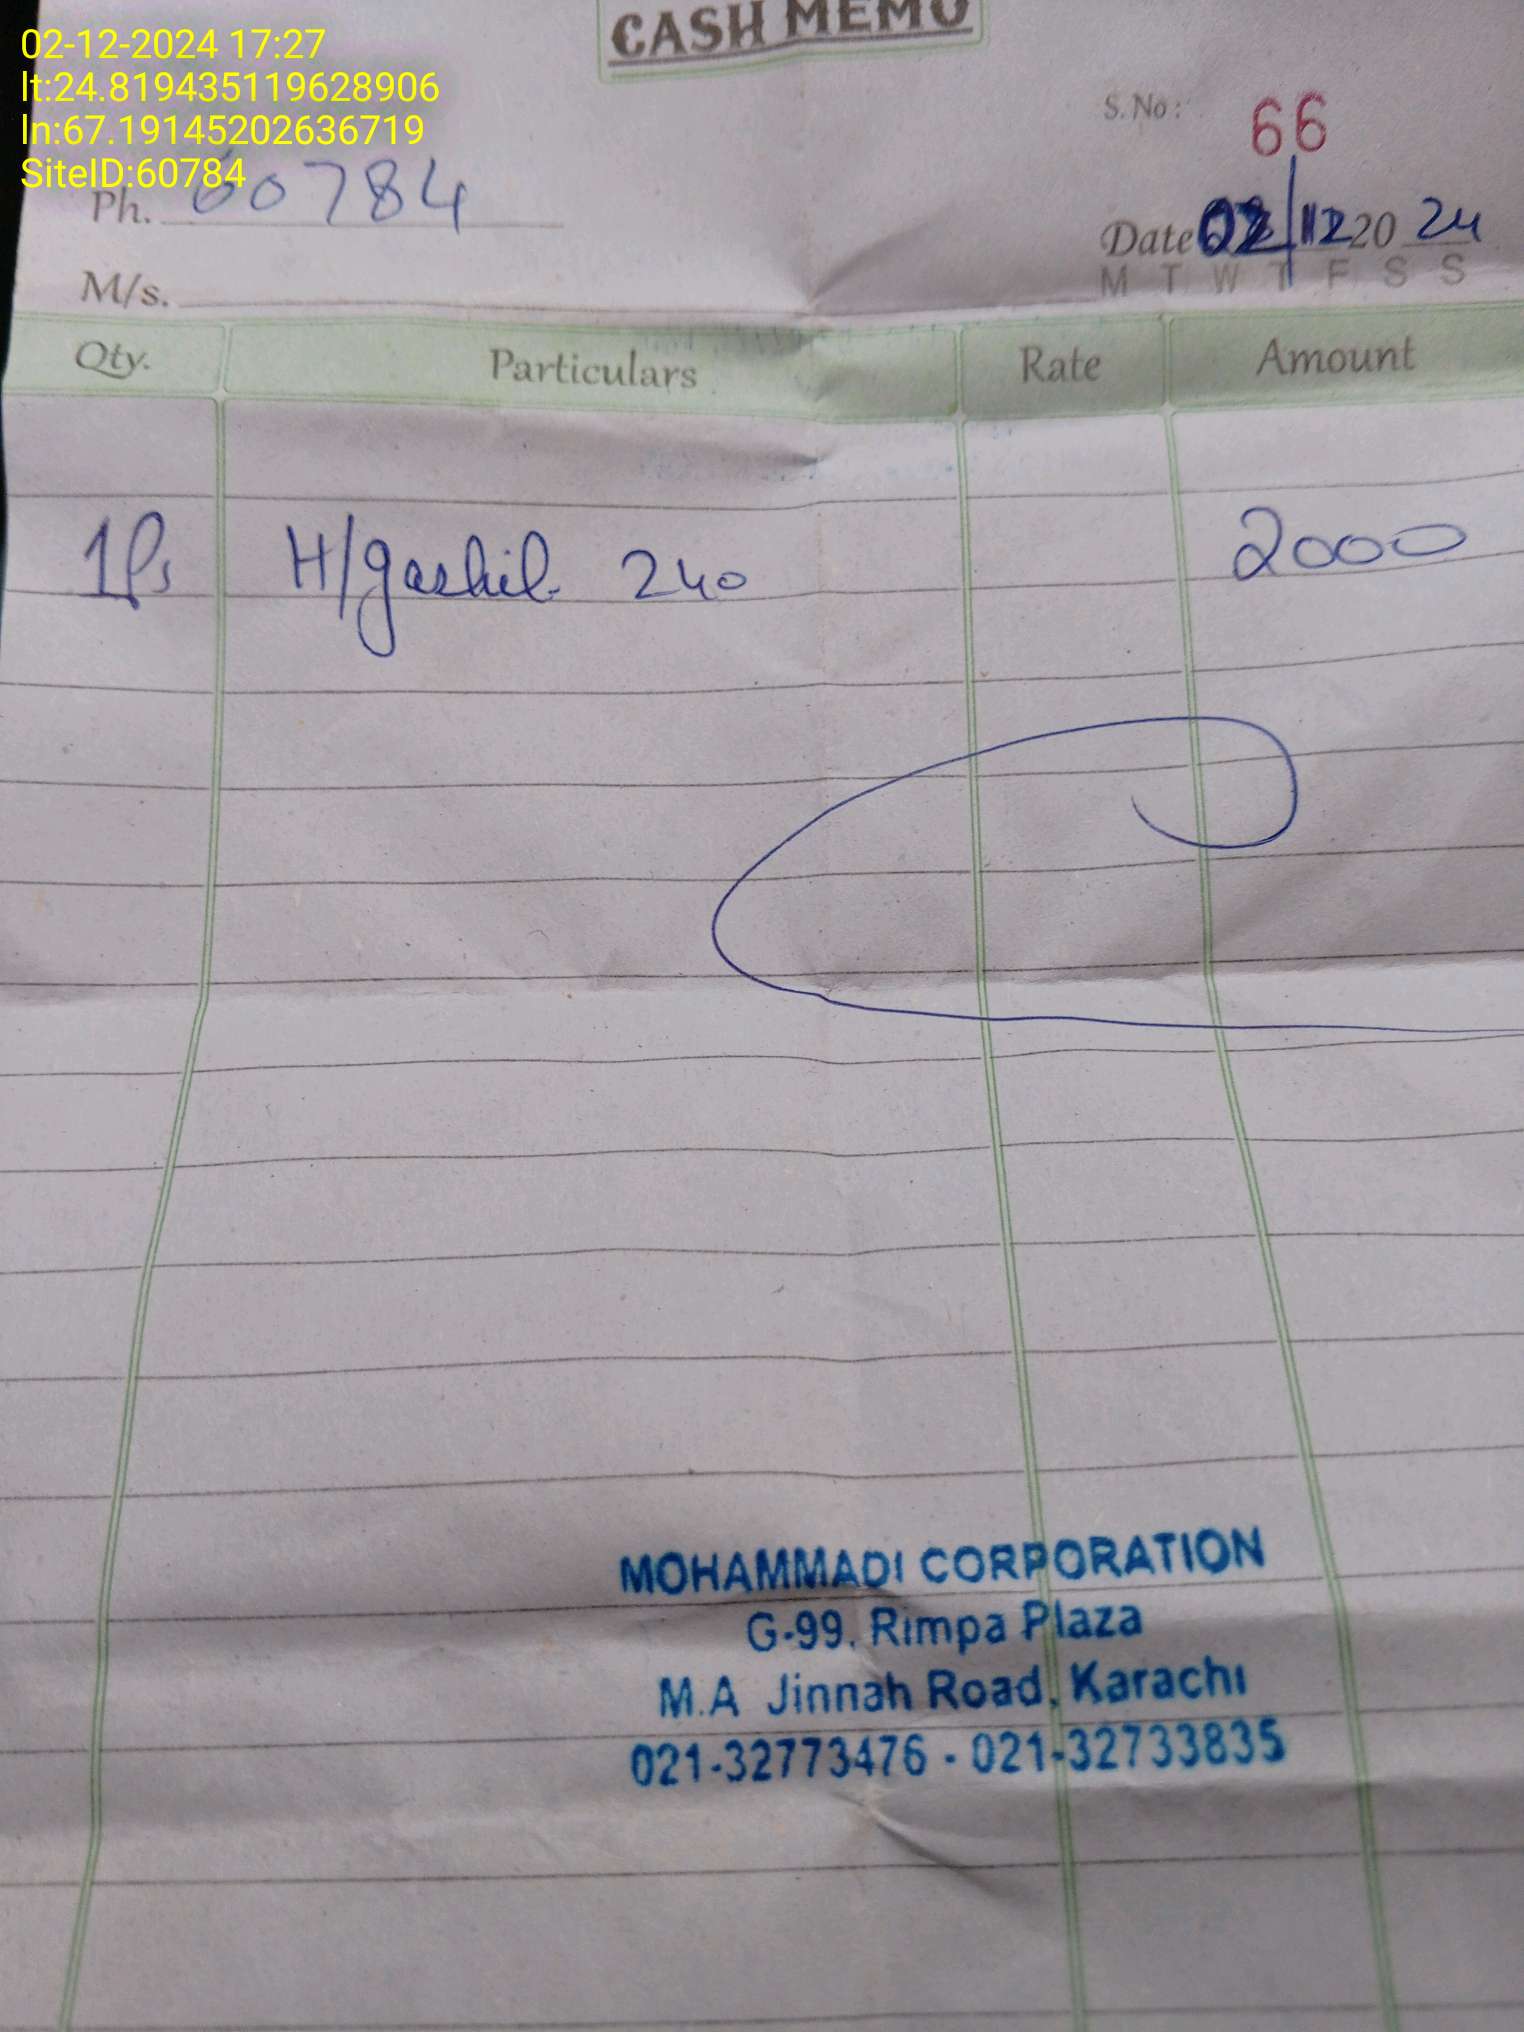 CASH MEMO
02-12-2024 17:27
lt:24.819435119628906
ln:67.19145202636719
SiteID:60784
S.No: 66
Ph. 60784
Date 02/12 20 24
M T W T F S S
M/s.
Qty. Particulars Rate Amount
1Ps H/gashil 240 2000
MOHAMMADI CORPORATION
G-99, Rimpa Plaza
M.A Jinnah Road, Karachi
021-32773476 - 021-32733835